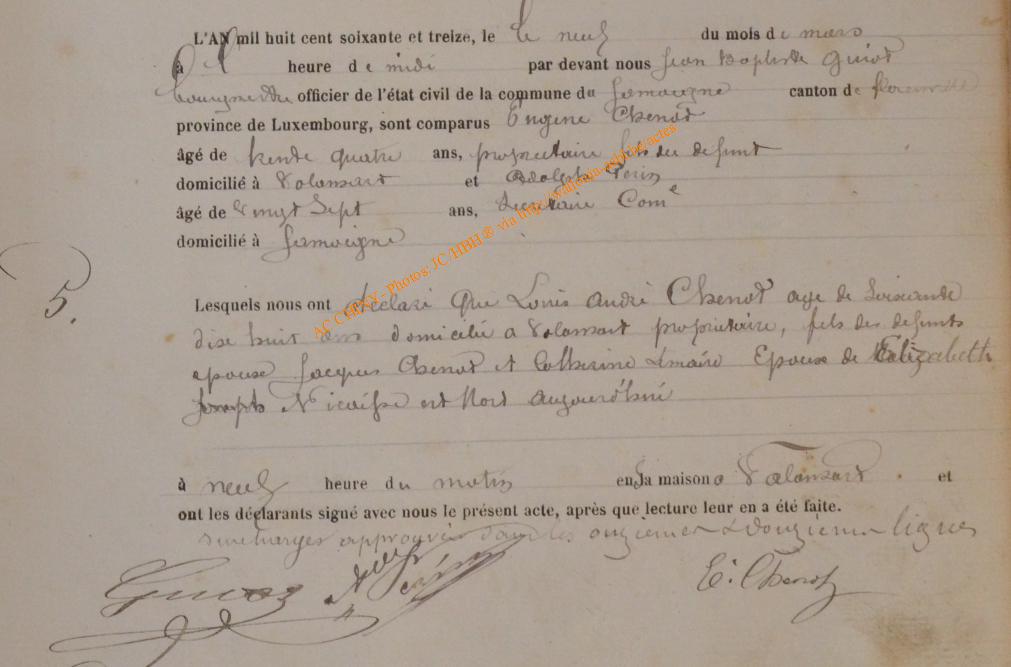 L'AN mil huit cent soixante et treize, le le neuf du mois de mars
à heure de midi par devant nous Jean Baptiste Guiot
bourgmestre officier de l'état civil de la commune du Jamoigne canton de florenville
province de Luxembourg, sont comparus Eugène Chenot
âgé de trente quatre ans, proprietaire fils du defunt
domicilié à Valansart et Adolphe Perin
âgé de Vingt Sept ans, Secretaire Com^e
domicilié à Jamoigne
5.
Lesquels nous ont declaré que Louis André Chenot age de Soixante
dise huit ans domicilié a Valansart proprietaire, fils des defunts
epouse Jacques Chenot et Catherine Lmaire Epoux de Elizabeth
Joseph Nicaisse est Mort aujourd'hui
à neuf heure du matin en la maison a Valansart . et
ont les déclarants signé avec nous le présent acte, après que lecture leur en a été faite.
surcharges approuvés dans les onziemes & douzieme lignes
Guiot Ad Perin E. Chenot
AC CHINY - Photos: JC/HBH ® via http://